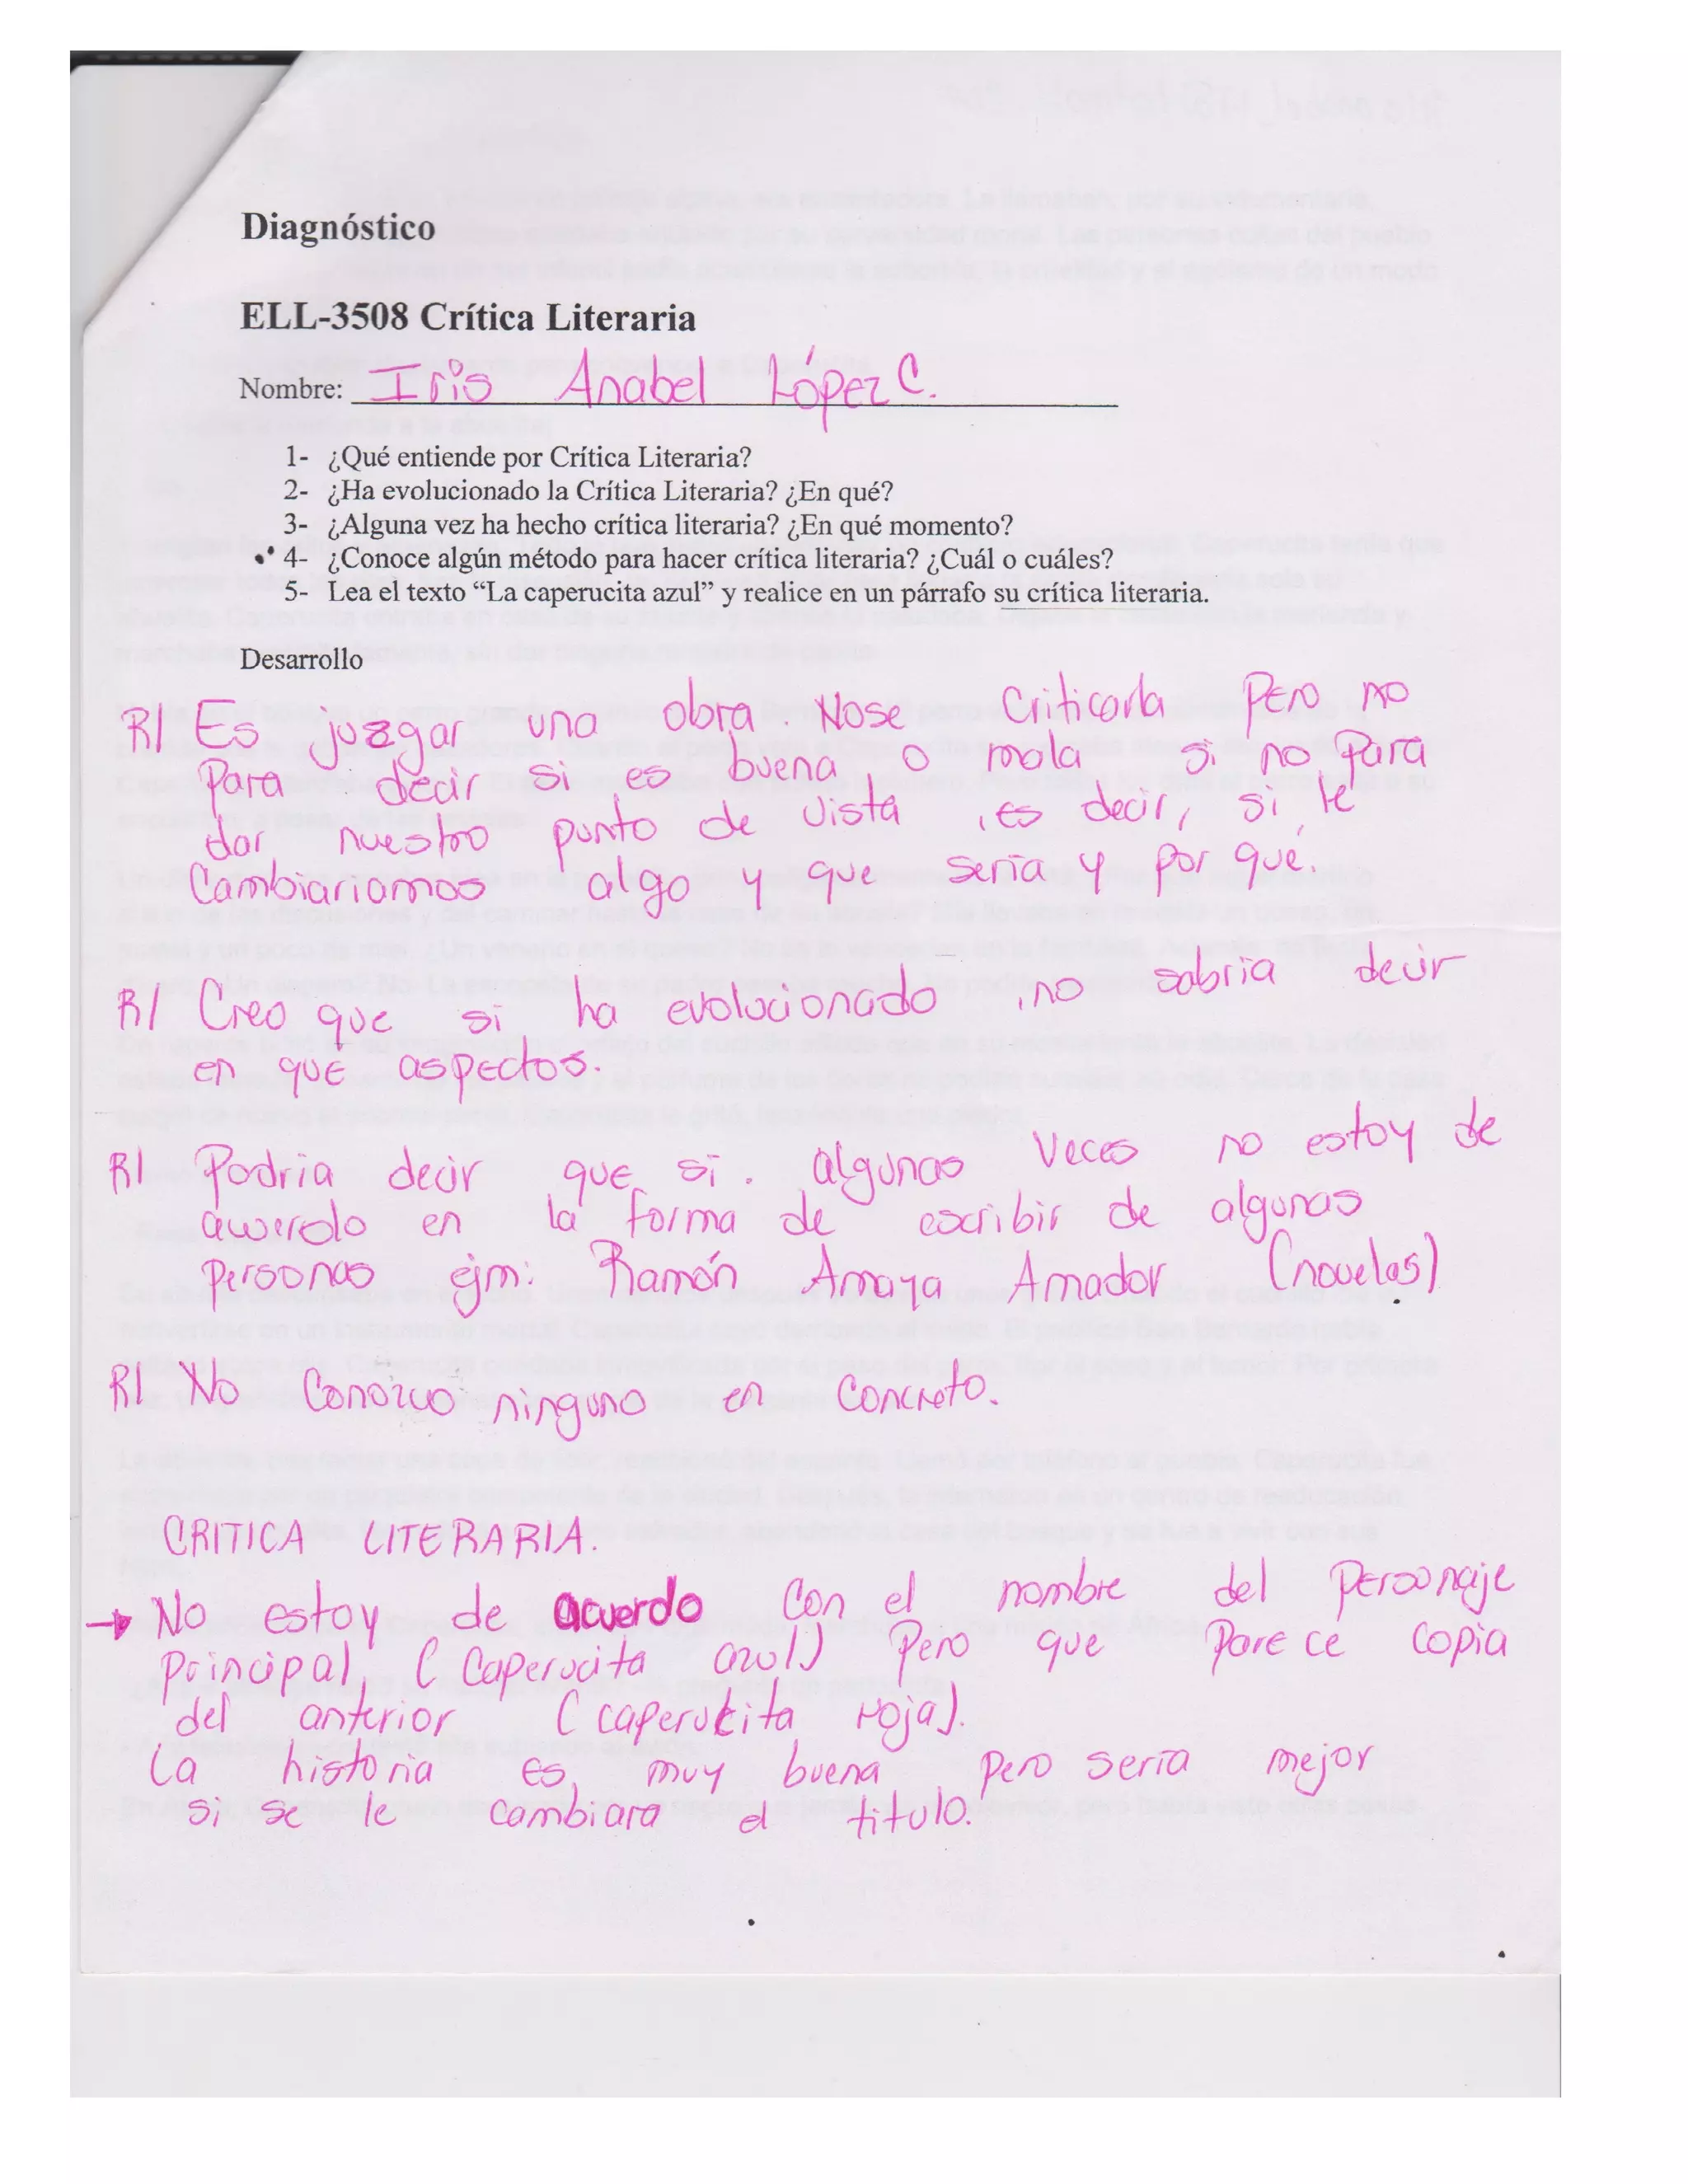 Diagnóstico
ELL-3508 Crítica Literaria
Nombre: Iris Anabel López C.
1- ¿Qué entiende por Crítica Literaria?
2- ¿Ha evolucionado la Crítica Literaria? ¿En qué?
3- ¿Alguna vez ha hecho crítica literaria? ¿En qué momento?
4- ¿Conoce algún método para hacer crítica literaria? ¿Cuál o cuáles?
5- Lea el texto “La caperucita azul” y realice en un párrafo su crítica literaria.
Desarrollo
R/ Es juzgar una obra. Nose Criticarla Pero no
Para decir si es buena o mala si no para
dar nuestro punto de vista, es decir, si le
Cambiariamos algo y que sería y por qué.
R/ Creo que si ha evolucionado, no sabria decir
en que aspectos.
R/ Podria decir que sí. algunas Veces no estoy de
acuerdo en la forma de escribir de algunas
personas ejm: Ramón Amaya Amador (novelas)
R/ No Conozco ninguno en Concreto.
CRITICA LITERARIA.
→ No estoy de acuerdo Con el nombre del Personaje
principal (Caperucita azul) Pero que Parece copia
del anterior (caperucita roja).
La historia es muy buena pero sería mejor
si se le cambiara el titulo.